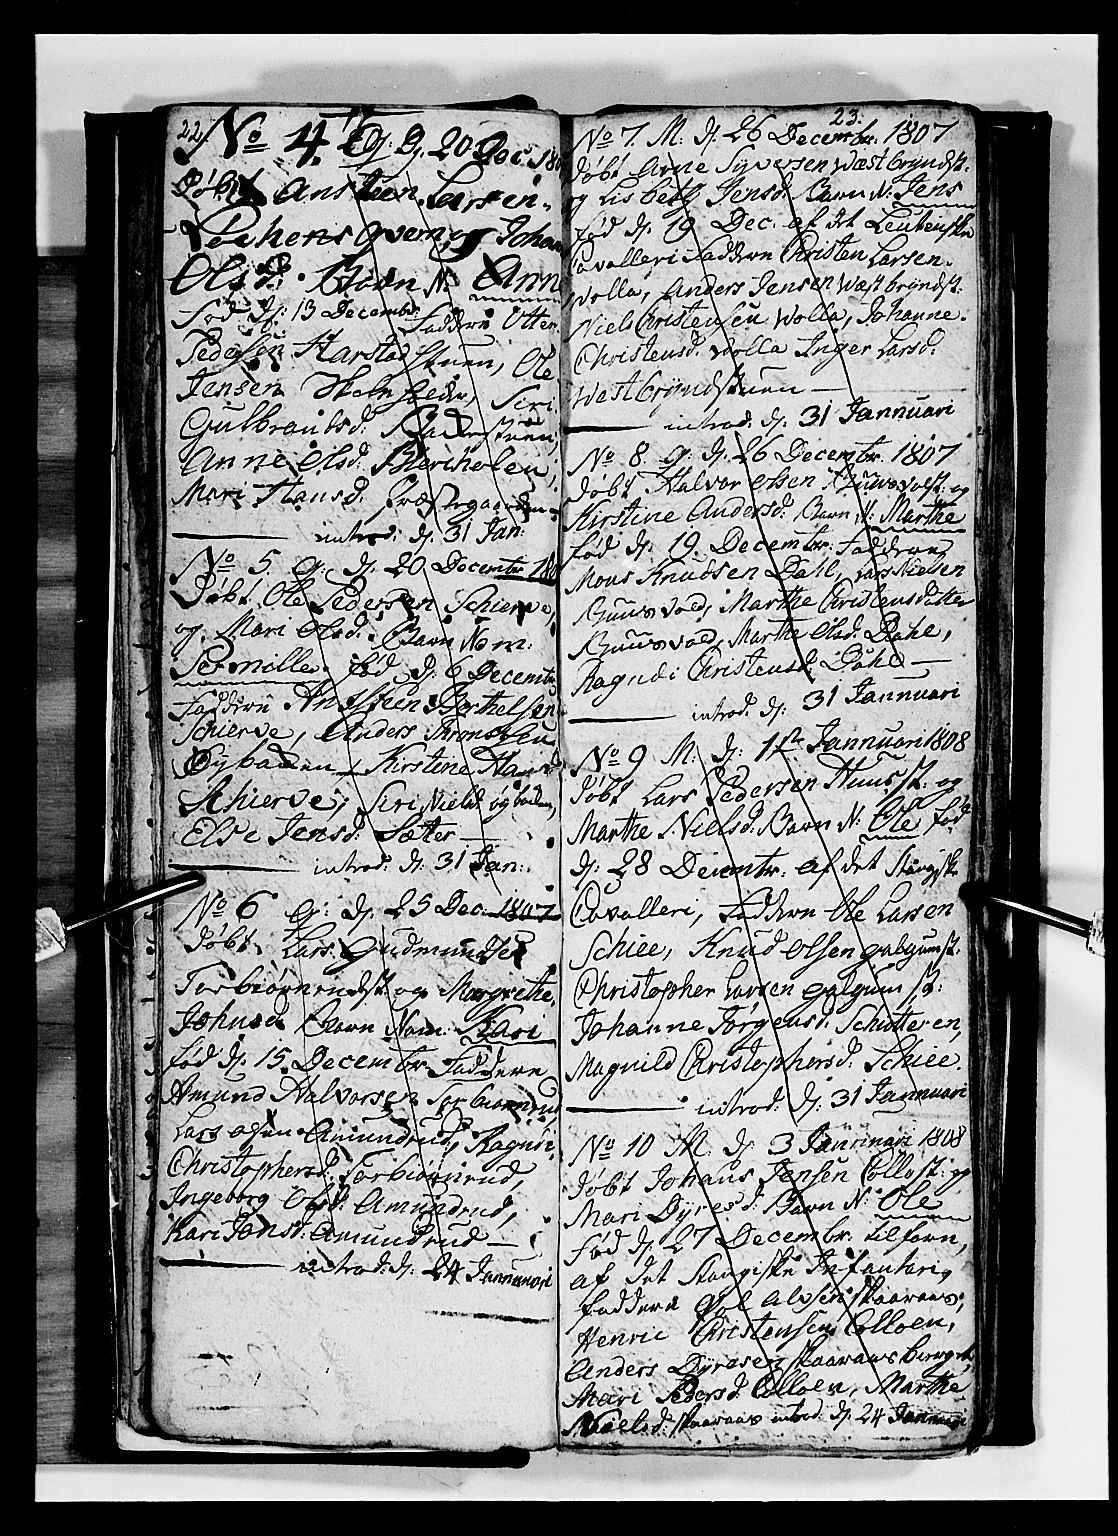 22.
No 4. G. d. 20 Dec. 180
Døbt Ansteen Larsen
og Johan
Olsd. Barn N. Ann
Fød d. 13 Decembr. Faddere Otter
Pedersen Harstad stuen, Ole
Jensen Helmsteder, Siri
Gulbrandsd.
Anne Olsd.
Mari Hansd. Præstegaarden
introd. d. 31 Jan.
No 5. G. d. 20 Decembr 180
Døbt Ole Pedersen Schierve,
og Mari Olsd. Barn Nom.
Pernille. fød d. 6 Decembr
Faddere Ansteen Berthelsen
Schierve, Anders Thronsen
Øybaden, Kirstine Hansd
Schierve, Siri Nielsd øybaden,
Else Jensd. Sæter
introd. d. 31 Jan.
No 6 G. d. 25 Dec. 1807
Døbt Lars Gudmundsen
Torbiørnrudst. og Margrethe
Johnsd Barn Nom. Kari
fød d. 15 Decembr Faddere
Amund Halvorsen Torbiørnrud
Lars Olsen Amundrud, Ragndi
Christophersd. Torbiørnrud,
Ingeborg Olsd. Amundrud,
Kari Jonsd. Amundrud
introd. d. 24 Jannuari
23.
No 7. M. d. 26 Decembr. 1807
Døbt Arne Syversen Wæstbryndst.
og Lisbeth Jensd. Barn N. Jens
fød d. 19 Dec. af det Leutenske
Cavalleri Faddere Christen Larsen
Wolla, Anders Jensen Wæstbryndst.
Niels Christensen Wolla, Johanne
Christensd. Wolla Inger Larsd.
Westbryndstuen
introd. d. 31 Jannuari
No 8. G. d. 26 Decembr. 1807
Døbt Halvor Olsen og
Kirstine Andersd. Barn N. Marthe
fød d. 19. Decembr. Faddere
Mons Knudsen Dahl, Lars Nielsen
Marthe Christensdatter
Marthe Olsd. Dahl,
Ragndi Christensd. Dahl
introd. d. 31 Jannuari
No 9 M. d. 1ste Jannuari 1808
Døbt Lars Pedersen Huusst. og
Marthe Nielsd. Barn N. Ole fød
d. 28 Decembr. af det Stangiske
Cavalleri, Faddere Ole Larsen
Schiee, Knud Olsen galgumst.
Christopher Larsen galgum st.
Johanne Jørgensd. Schotteren,
Magnild Christophersd. Schiee.
introd. d. 31 Jannuari
No 10 M. d. 3 Jannuari 1808
Døbt Johans Jensen Collost. og
Mari Dyresd. Barn N. Ole
fød d. 27 Decembr. tilforn,
af det Stangiske Infanteri,
faddere Gol Alvsen skaaraas,
Henric Christensen Colloen,
Anders Dyresen skaaraas
Mari Pedersd. Colloen, Marthe
Nielsd. skaaraas introd. d. 24 Jannuari